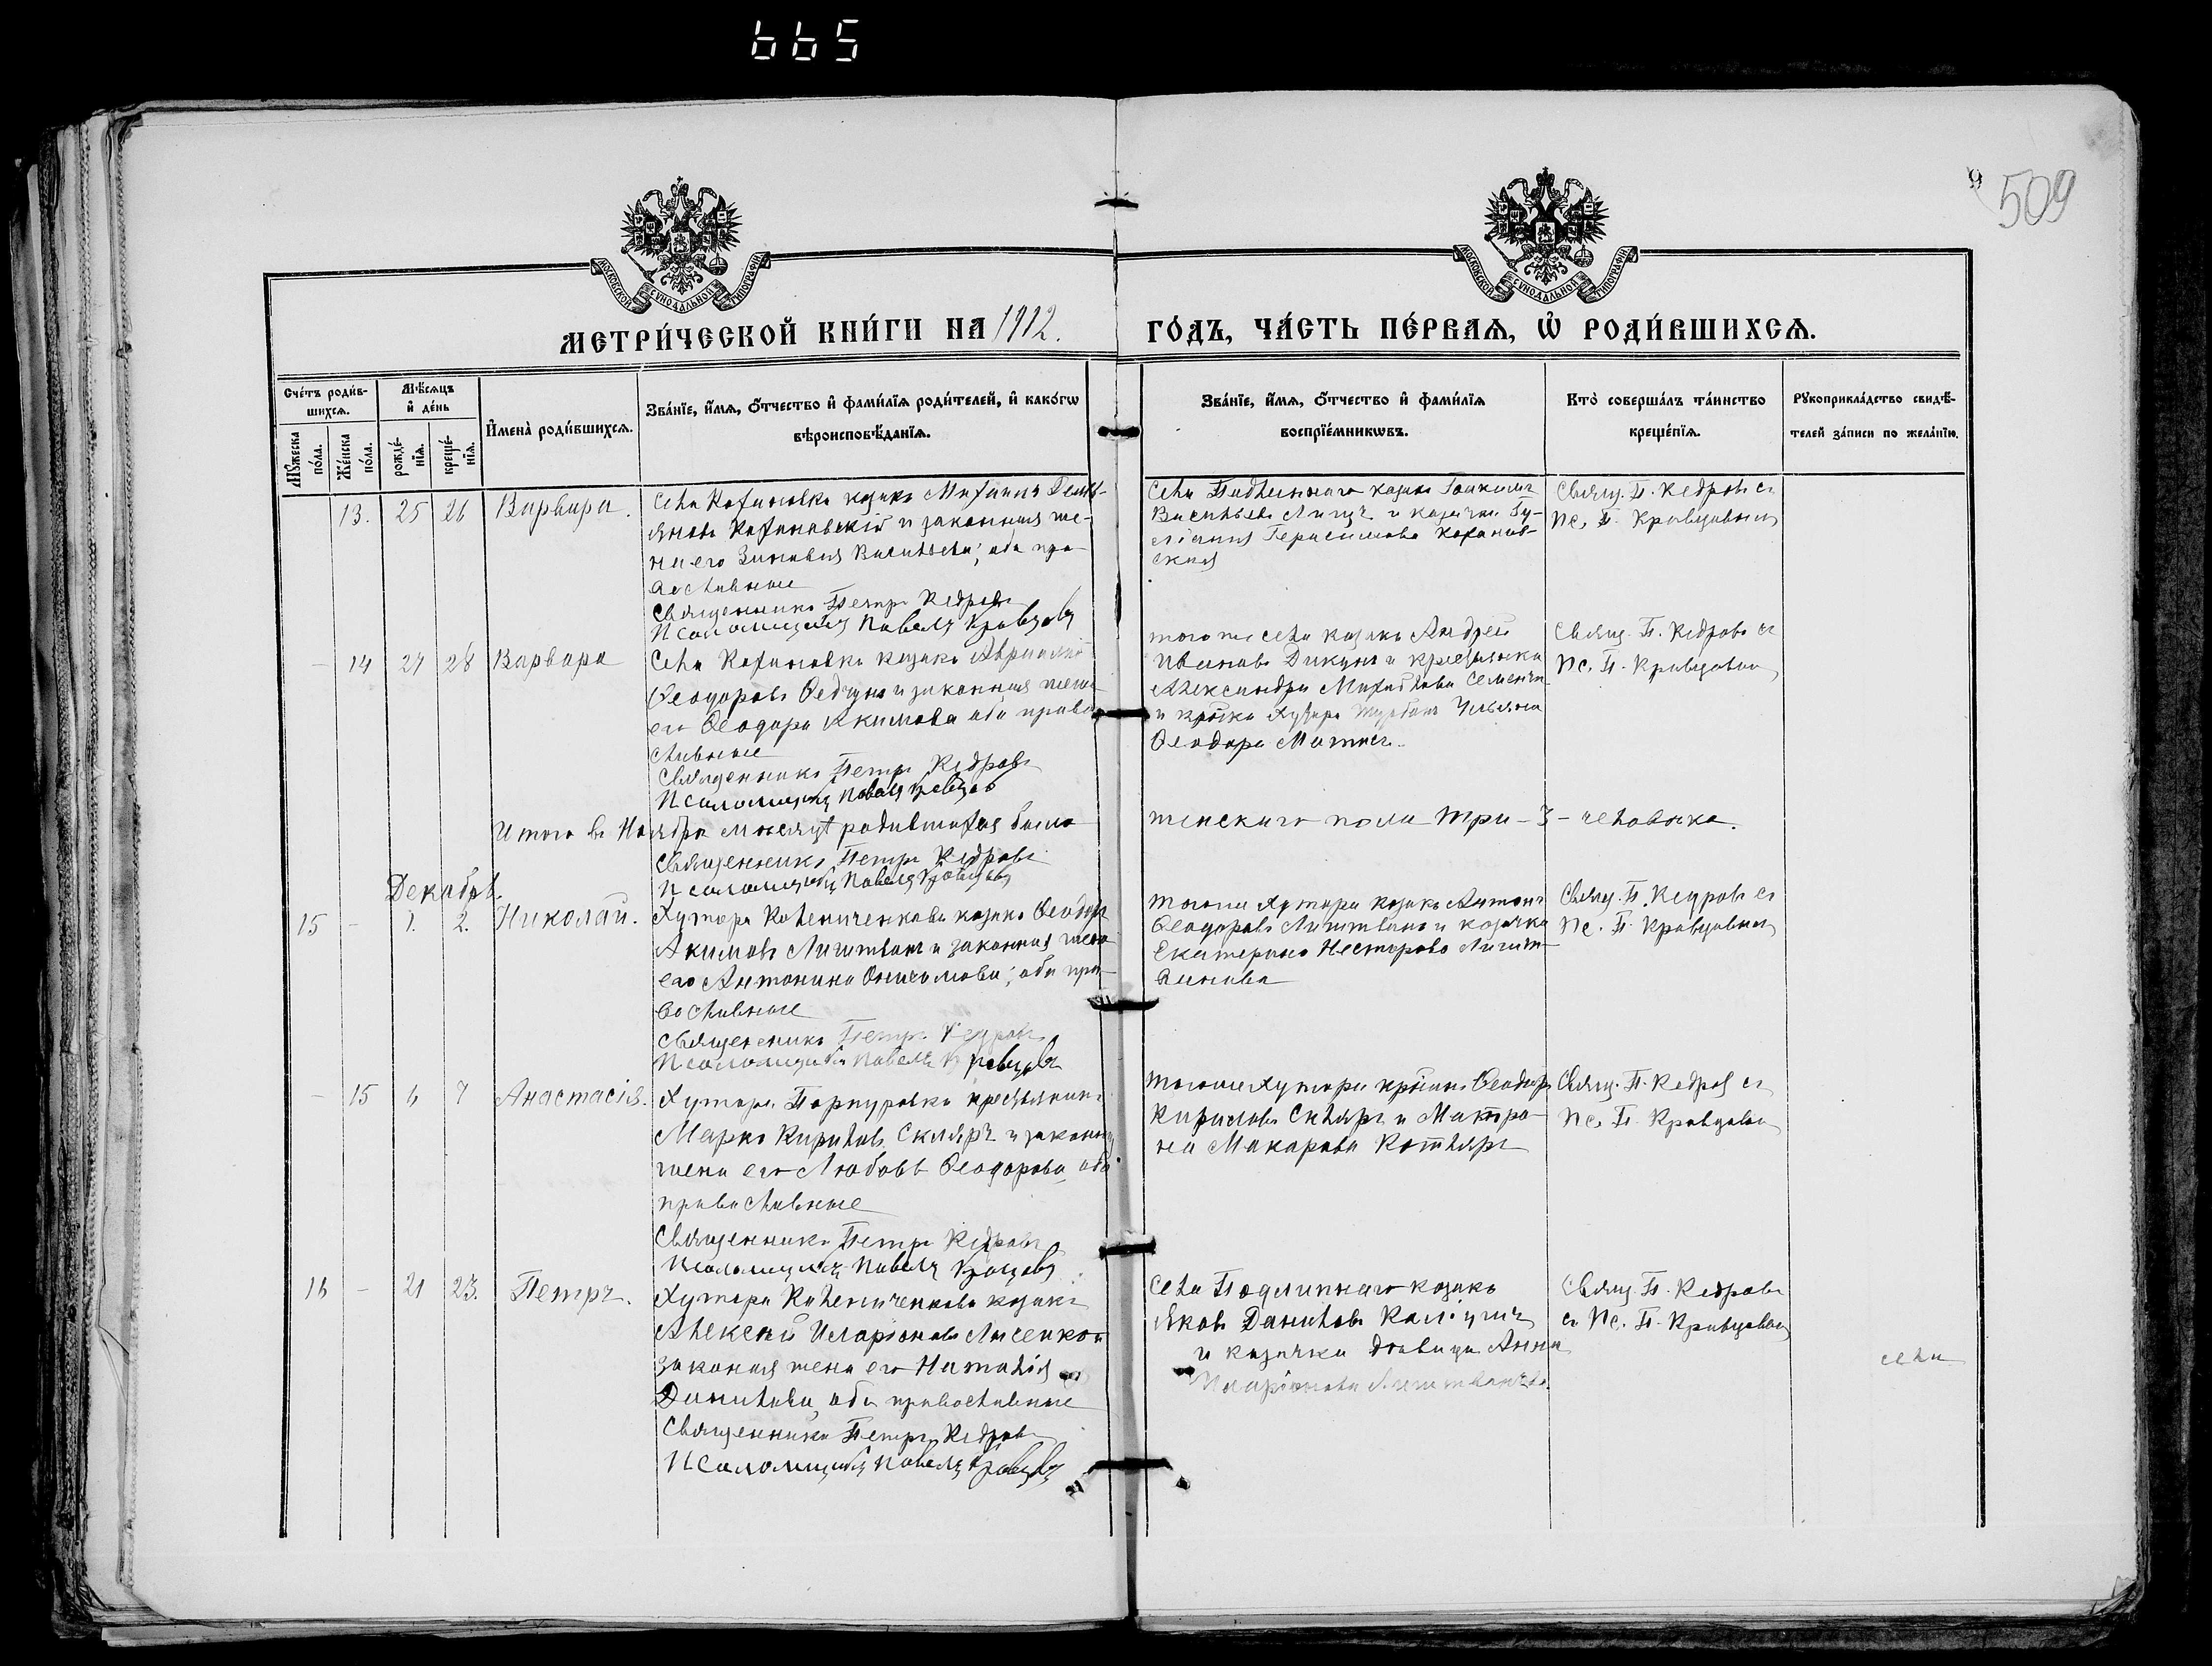 665
9
509
МОСКОВСКОЙ СѴНОДАЛЬНОЙ ТИПОГРАФІИ
МОСКОВСКОЙ СѴНОДАЛЬНОЙ ТИПОГРАФІИ
МЕТРИ́ЧЕСКОЙ КНИ́ГИ НА 1912. ГО́ДЪ, ЧА́СТЬ ПЕ́РВАѦ, Ѡ҆ РОДИ́ВШИХСѦ.
Сче́тъ роди́в-
шихсѧ.
Мꙋ́жеска по́ла.
Же́нска по́ла.
Мѣ́сѧцъ
и҆ де́нь
рожде́-
нїѧ.
креще́-
нїѧ.
И҆мена̀ роди́вшихсѧ.
Зва́нїе, и҆́мѧ, ѻ҆́тчество и҆ фами́лїѧ роди́телей, и҆ како́гѡ
вѣроисповѣ́данїѧ.
Зва́нїе, и҆́мѧ, ѻ҆́тчество и҆ фами́лїѧ
воспрїе́мникѡвъ.
Кто̀ соверша́лъ та́инство
креще́нїѧ.
Рꙋкоприкла́дство свидѣ́-
телей за́писи по жела́нїю.
13. 25 26 Варвара.
Села Кохановки козакъ Михаилъ Демь-
яновъ Кохановскій и законная же-
на его Зиновия Васильева; оба пра-
вославные
Священникъ Петръ Кедровъ
Псаломщикъ Павелъ Кравцовъ
Села Подлипнаго козакъ
Васильевъ и козачка
Герасимова Киханов-
ская
Свящ. П. Кедровъ съ
Пс. П. Кравцовымъ
- 14 27 28 Варвара
Села Кохановки козакъ
Ѳеодоровъ и законная жена
его Ѳеодора Якимова оба право
славные
Священникъ Петръ Кедровъ
Псаломщикъ Павелъ Кравцовъ
того же села козакъ Андрей
Ивановъ Дикунъ и крестьянка
Александра Михайлова
и хутора Ульяна
Ѳеодора
Свящ. П. Кедровъ съ
Пс. П. Кравцовымъ
Итого въ Ноябрѣ мѣсяцѣ родившихся было женскаго пола три - 3 - человѣка.
Священникъ Петръ Кедровъ
Псаломщикъ Павелъ Кравцовъ
Декабрь.
15 - 1. 2. Николай.
Хутора козакъ Ѳеодоръ
Акимовъ Лигитванъ и законная жена
его Антонина Онисимова; оба пра-
вославные
Священникъ Петръ Кедровъ
Псаломщикъ Павелъ Кравцовъ
того же хутора козакъ Антонъ
Ѳеодоровъ и козачка
Екатерина Несторова
Свящ. П. Кедровъ съ
Пс. П. Кравцовымъ
- 15 6 7 Анастасія.
Хутора крестьянинъ
Марко Кириловъ Скляръ и законная
жена его Любовь Ѳеодорова, оба
православные
Священникъ Петръ Кедровъ
Псаломщикъ Павелъ Кравцовъ
того же хутора Ѳеодоръ
Кириловъ Скляръ и Матро-
на Макарова Котляръ
Свящ. П. Кедровъ съ
Пс. П. Кравцовымъ
16 - 21 23. Петръ.
Хутора козакъ
Алексѣй Иларіоновъ Лисенко и
законая жена его Наталія
Данилова, оба православные
Священникъ Петръ Кедровъ
Псаломщикъ Павелъ Кравцовъ
Села Подлипнаго козакъ
Яковъ Даниловъ
и козачка дѣвица Анна
Иларіонова
Свящ. П. Кедровъ
съ Пс. П. Кравцовымъ
села